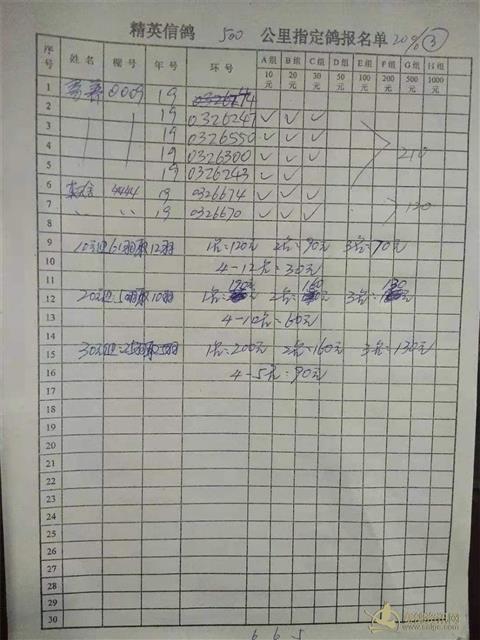 精英信鸽 500 公里指定鸽报名单 20% ③
序号 姓名 棚号 年号 环号 A组 10元 B组 20元 C组 30元 D组 50元 E组 100元 F组 200元 G组 500元 H组 1000元
1 0009 19
2 19 0326247 ✓ ✓ ✓
3 19 0326550 ✓ ✓ ✓
4 19 0326300 ✓ ✓ ✓ 210
5 19 0326243 ✓ ✓
6 4444 19 0326674 ✓ ✓ ✓
7 19 0326670 ✓ ✓ ✓ 130
8
9 10元 61羽取12羽 1名:120元 2名:90元 3名:70元
10 4-12名:30元
11
12 20元 50羽取10羽 1名: 2名:160 3名:130
13 4-10名:60元
14
15 30元 25羽取5羽 1名:200元 2名:160元 3名:130元
16 4-5名:90元
17
18
19
20
21
22
23
24
25
26
27
28
29
30
6 6 5